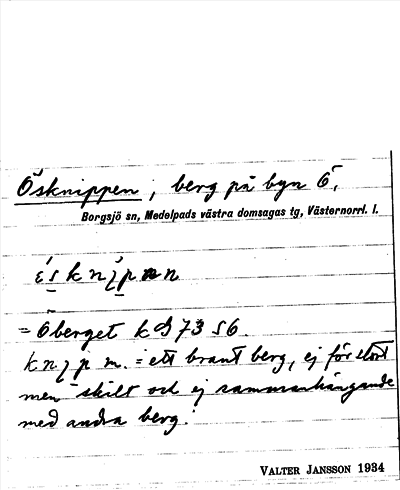 Ösknippen, berg på byn Ö,
Borgsjö sn, Medelpads västra domsagas tg, Västernorrl. l.
= Öberget
m. = ett brant berg, ej för stort
men skilt och ej sammanhängande
med andra berg.
VALTER JANSSON 1934